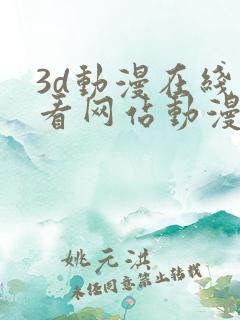 3d動漫在綫
看网站動漫
姚元淇
未任同意禁止转载